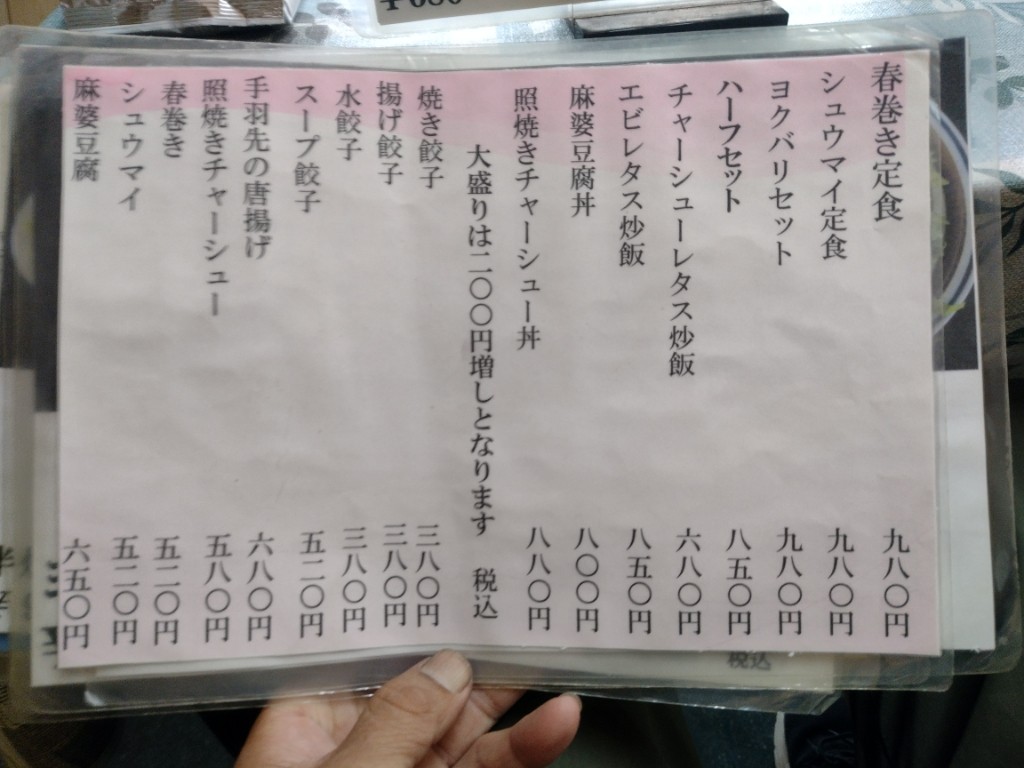 春巻き定食 九八〇円
シュウマイ定食 九八〇円
ヨクバリセット 九八〇円
ハーフセット 八五〇円
チャーシューレタス炒飯 六八〇円
エビレタス炒飯 八五〇円
麻婆豆腐丼 八〇〇円
照焼きチャーシュー丼 八八〇円
大盛りは二〇〇円増しとなります 税込
焼き餃子 三八〇円
揚げ餃子 三八〇円
水餃子 三八〇円
スープ餃子 五二〇円
手羽先の唐揚げ 六八〇円
照焼きチャーシュー 五八〇円
春巻き 五二〇円
シュウマイ 五二〇円
麻婆豆腐 六五〇円
税込